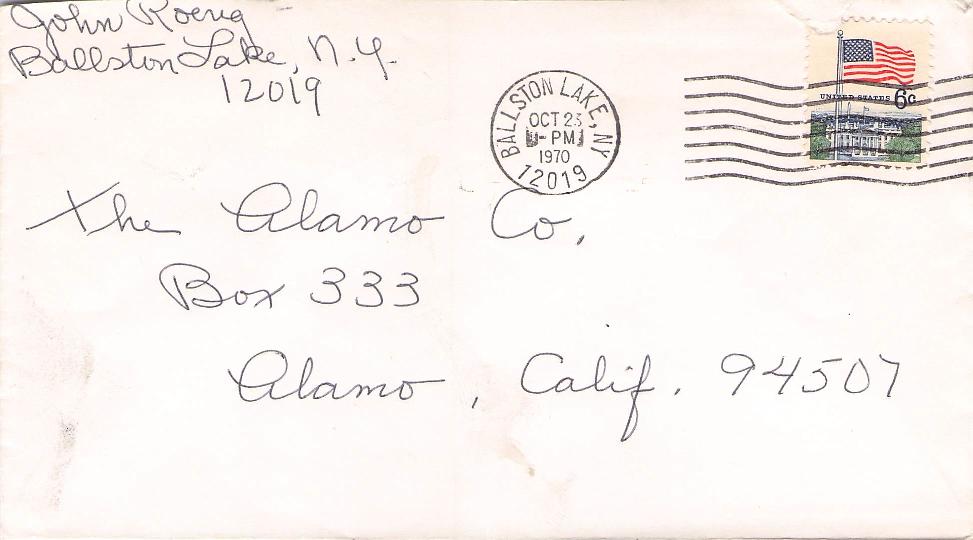 John Roenig
Ballston Lake, N.Y.
12019
BALLSTON LAKE, NY
OCT 23
PM
1970
12019
UNITED STATES 6c
The Alamo Co.
Box 333
Alamo, Calif. 94507